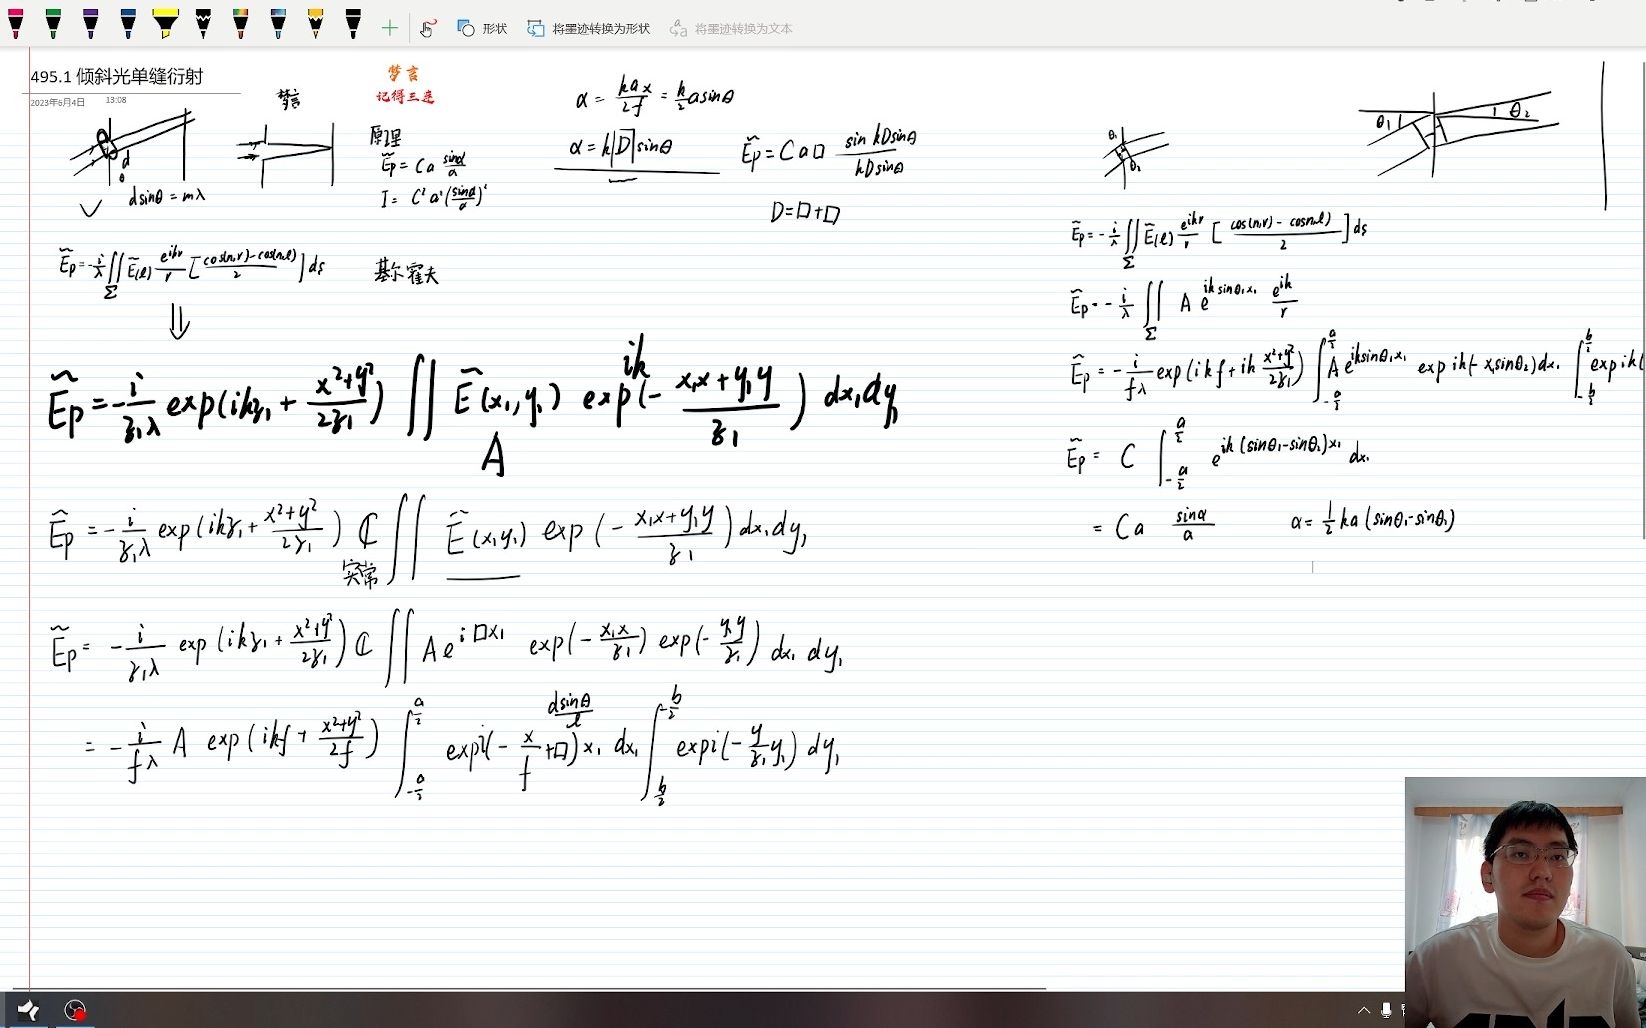 形状 将墨迹转换为形状 将墨迹转换为文本
495.1 倾斜光单缝衍射
2023年6月4日 13:08
梦言
记得三连
梦言
dsinθ = mλ
原理
Ẽp = Ca sinα/α
I = C²a²(sinα/α)²
α = kax/2f = k/2 asinθ
α = k|D|sinθ
Ẽp = Ca□ sin kDsinθ / kDsinθ
D = □+□
Ẽp = -i/λ ∬_Σ Ẽ(l) e^{ikr}/r [cos(n,r) - cos(n,l) / 2] ds
基尔霍夫
⇓
Ẽp = -i/z₁λ exp(ikz₁ + x²+y²/2z₁) ∬ Ẽ(x₁,y₁) exp^{ik}(- x₁x+y₁y/z₁) dx₁dy₁
A
Ẽp = -i/z₁λ exp(ikz₁ + x²+y²/2z₁) ₵ ∬ Ẽ(x₁y₁) exp(- x₁x+y₁y/z₁) dx₁dy₁
实常
Ẽp = -i/z₁λ exp(ikz₁ + x²+y²/2z₁) ₵ ∬ A e^{i□x₁} exp(- x₁x/z₁) exp(- y₁y/z₁) dx₁ dy₁
= -i/fλ A exp(ikf + x²+y²/2f) ∫_{-a/2}^{a/2} exp i(- x/f +□)x₁ dx₁ ∫ exp i(- y/z₁ y₁) dy₁
dsinθ/l
θ₁
θ₁ θ₂
Ẽp = -i/λ ∬_Σ Ẽ(l) e^{ikr}/r [cos(n,r) - cos(n,l) / 2] ds
Ẽp = -i/λ ∬_Σ A e^{ik sinθ₁x₁} e^{ik}/r
Ẽp = -i/fλ exp(ikf + ik x²+y²/2z₁) ∫_{-a/2}^{a/2} A e^{iksinθ₁x₁} exp ik(-x₁sinθ₂)dx₁ ∫_{-b/2}^{b/2} exp ik(
Ẽp = C ∫_{-a/2}^{a/2} e^{ik(sinθ₁-sinθ₂)x₁} dx₁
= Ca sinα/α α = 1/2 ka(sinθ₁-sinθ₂)